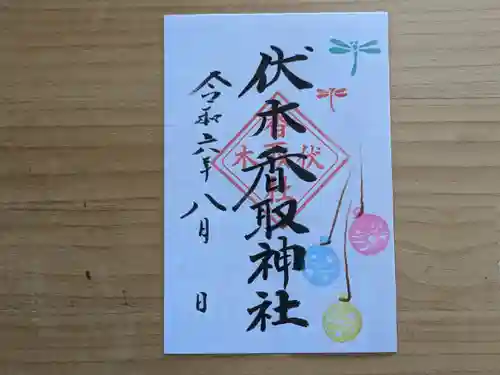 伏木香取神社
令和六年八月 日
伏木
香取社